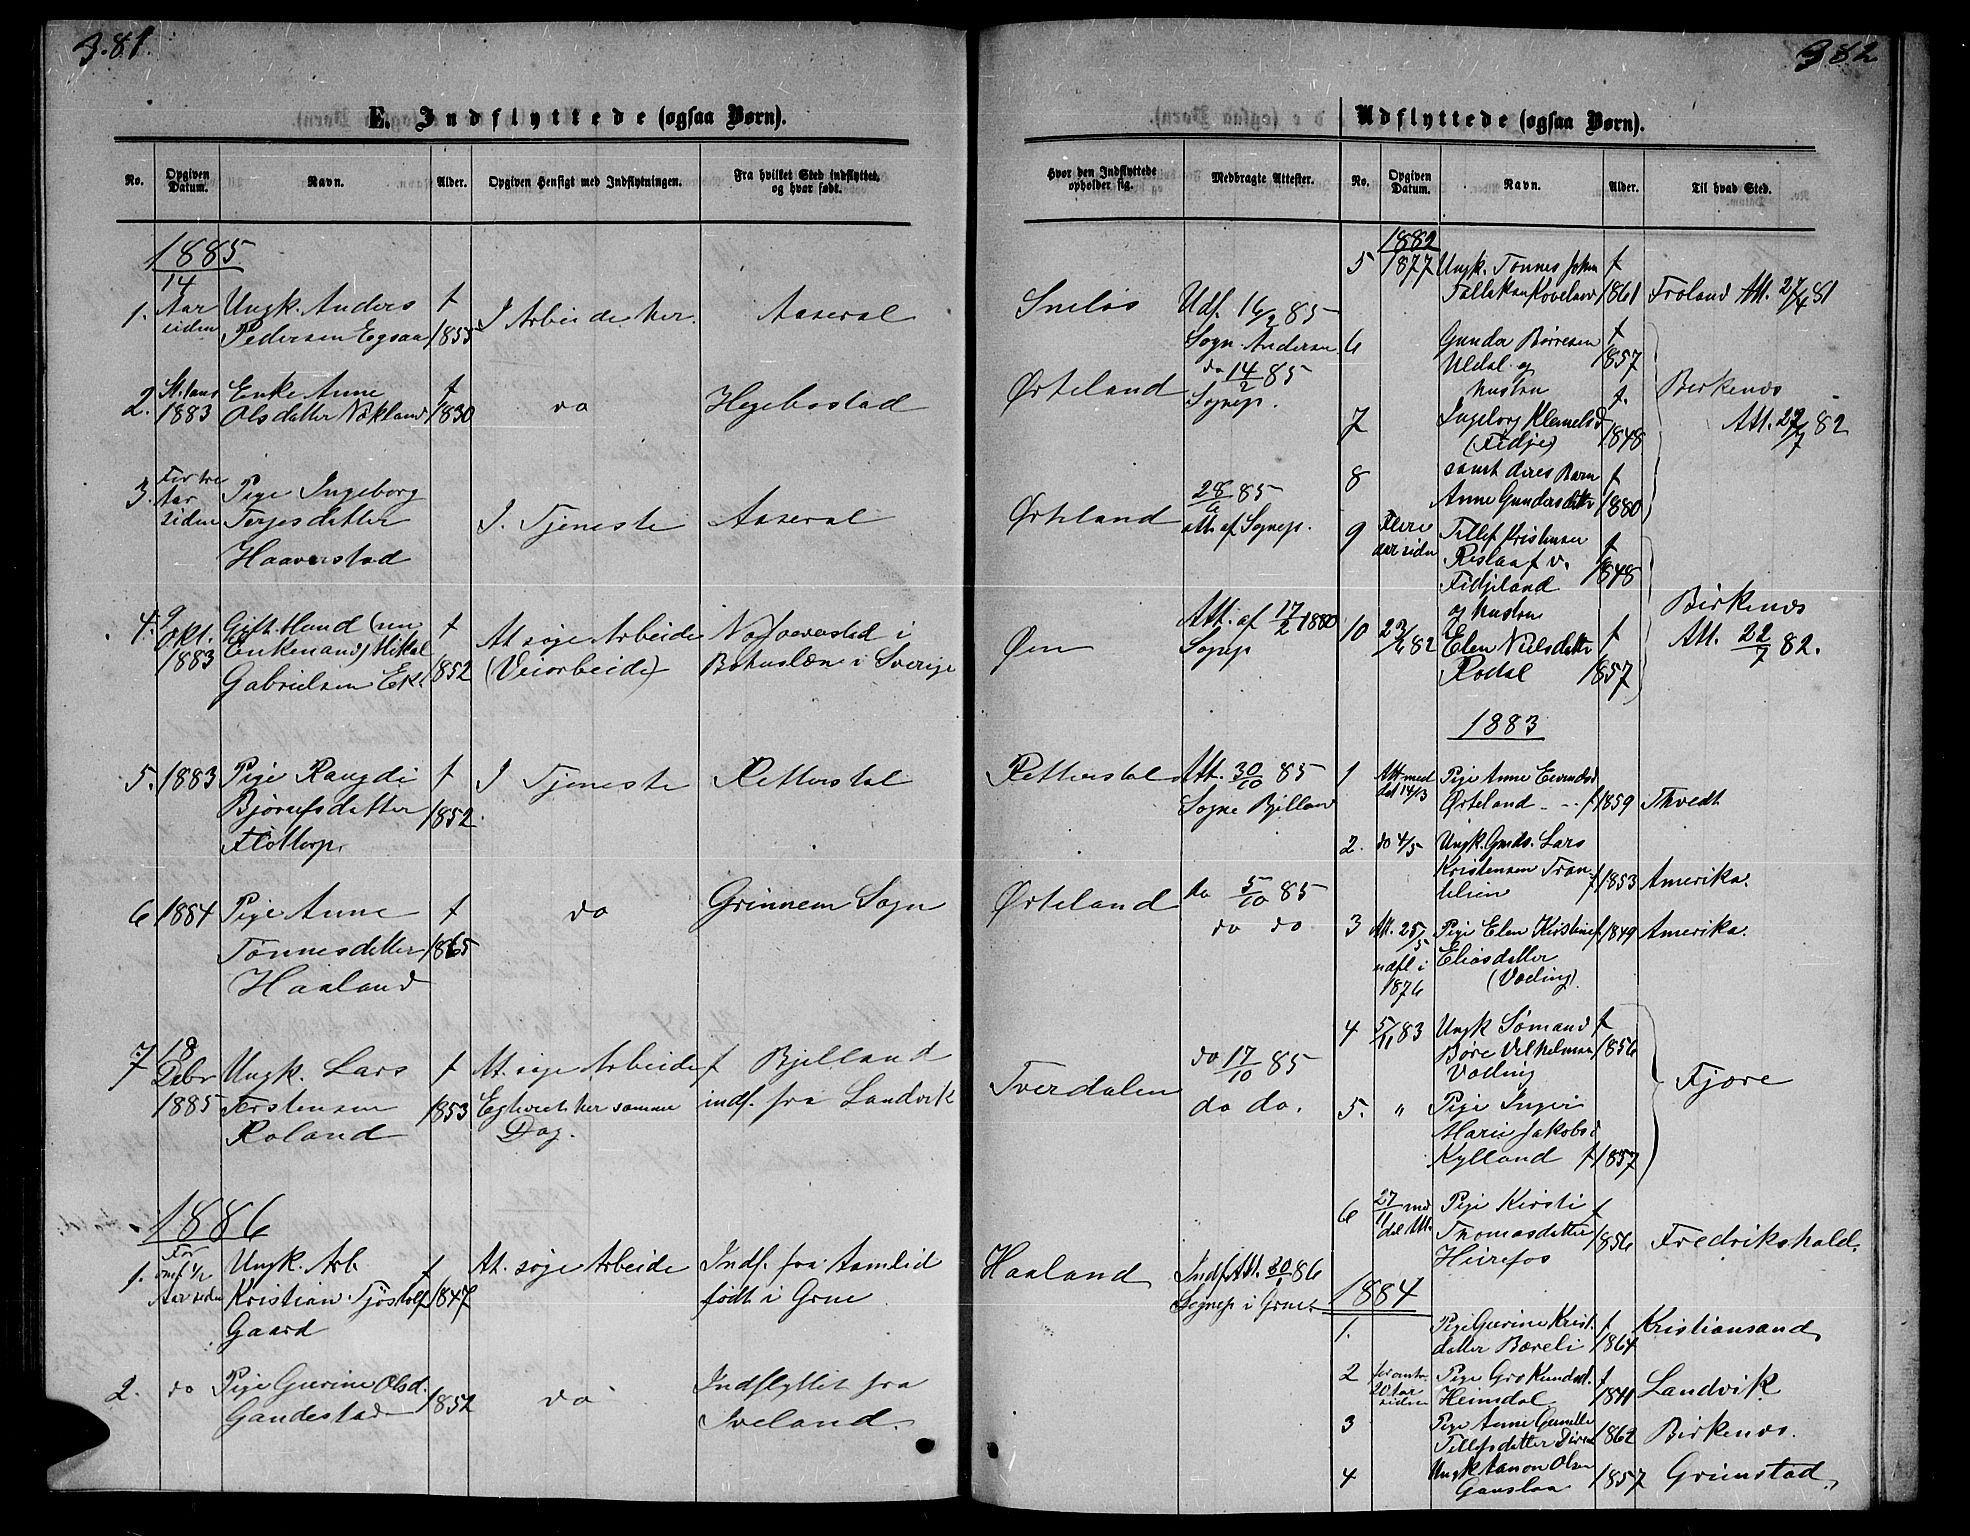 381.
E. Indflyttede (ogsaa Børn).
No.
Opgiven Datum.
Navn.
Alder.
Opgiven Hensigt med Indflytningen.
Fra hvilket Sted indflyttet, og hvor født.
1885
1.
14 Aar siden
Ungk. Anders
Pedersen Egsaa
f 1855
I Arbeide her.
Aaseral
2.
1883
Enke Anne
Olsdatter Nökland
f 1830
do
Hegebostad
3.
For tre Aar siden
Pige Ingeborg
Terjesdatter
Haaverstad
I Tjeneste
Aaseral
4.
9 Okt. 1883
Gift Mand (nu
Enkemand) Mikal
Gabrielsen
f 1852
At søge Arbeide
(Veiarbeide)
i
Bohuslæn i Sverige
5.
1883
Pige Rangdi
Bjørnfsdatter
Flottorp.
f 1852.
I Tjeneste
Retterstøl
6
1884
Pige Anne
Tønnesdatter
Haaland
f 1865
do
Grinnem Sogn
7
18 Debr 1885
Ungk. Lars
Terstensen
Roland
f 1853
At søge Arbeide
Egteviet her samme
Dag.
f Bjelland
indf. fra Landvik
1886
1.
For omt. 1/2 Aar siden
Ungk. Arb.
Kristian Tjøstolfs
Gaard
f 1847
At søge Arbeide
Indf. fra Aamlid
født i Grue
2.
do
Pige Gurine Olsd.
Gandestad
1852
do
Indflyttet fra
Iveland.
382
Udflyttede (ogsaa Børn).
Hvor den Indflyttede opholder sig.
Medbragte Attester.
No.
Opgiven Datum.
Navn.
Alder.
Til hvad Sted.
Sneløs
Udf. 16/2 85
Sogn. Andersen
Ørteland
do 14/2 85
Sognep.
Ørteland
28/6 85
att. af Sognep.
Øen
Att. af 17/2 1880
Sognep
Retterstøl
Att. 30/10 85
Sogne Bjelland
Ørteland
do 5/10 85
do do
Tverdalen
do 17/10 85
do do.
Haaland
Indf. Att. 30/1 86
Sognep i Grue
1882
5
1877
Ungk. Tønnes John
Tellefsen Koveland
f 1861
Froland Att. 27/6 81
6
Gunder Børresen
Uldal og
hustru
f 1857
7
Ingeborg Klemetsd
(Fidje)
f. 1848
Birkenes
Att. 22/7 82
8
samt deres Barn
Anne Gundersdatter
f 1880
9
Flere aar siden
Tellef Kristensen
Rislaa f v.
Fidjeland
og hustru
f 1848
10
23/6 82
Elen Nielsdatter
Rodal
f 1857
Birkenes
Att. 22/7 82.
1883
1
Att med del 14/3
Pige Anne Eivindsd
Ørteland
f 1859
Thvedt
2.
do 4/5
Ungk. Gmds. Lars
Kristensen Tran-
lilien
f 1853
Amerika.
3
Att. 25/5 udfl i 1876
Pige Elen Kirstine
Eliasdatter
(Væding)
f 1849
Amerika.
4
5/11 83
Ungk Sømand
Børe Vilhelmsen
Væding
f 1856
5.
"
Pige Inger
Marie Jakobsd
Kylland
f 1857
Fjære
6
27/11 med del Att.
Pige Kirsti
Thomasdatter
Heirefos
f 1856
Fredrikshald.
1884
1.
Pige Gurine Krist.
datter Bæveli
f 1864
Kristiansand
2
for omtr. 20 Aar siden
Pige Gro Knudsd.
Heimdal
f 1841
Landvik
3
Pige Anne Gunille
Tellefsdatter
1862
Birkenes.
4
Ungk Aanon Olsen
Ganslaa
1857
Grimstad.